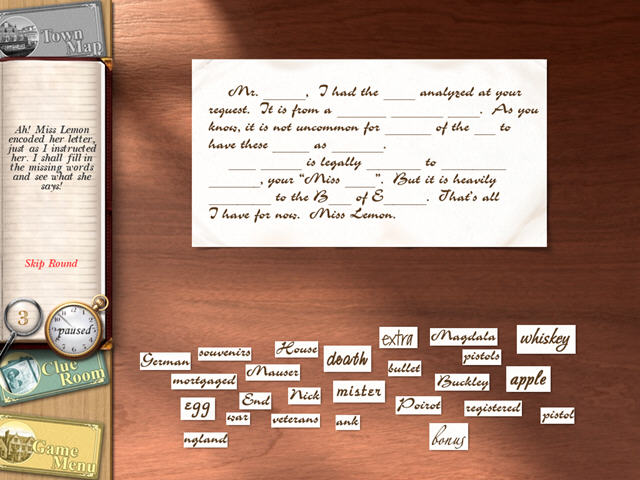 Town
Map
Ah! Miss Lemon
encoded her letter,
just as I instructed
her. I shall fill in
the missing words
and see what she
says!
Skip Round
3
paused
Clue
Room
Game
Menu
Mr. ______, I had the ____ analyzed at your
request. It is from a ______ ______ ____. As you
know, it is not uncommon for ______ of the ___ to
have these _____ as _______.
____ _____ is legally _____ to ________
_______, your "Miss ____". But it is heavily
________ to the B___ of E_____. That's all
I have for now. Miss Lemon.
extra
Magdala
whiskey
German
souvenirs
House
death
pistols
mortgaged
Mauser
bullet
Buckley
apple
egg
End
Nick
mister
Poirot
registered
pistol
war
veterans
ank
ngland
bonus